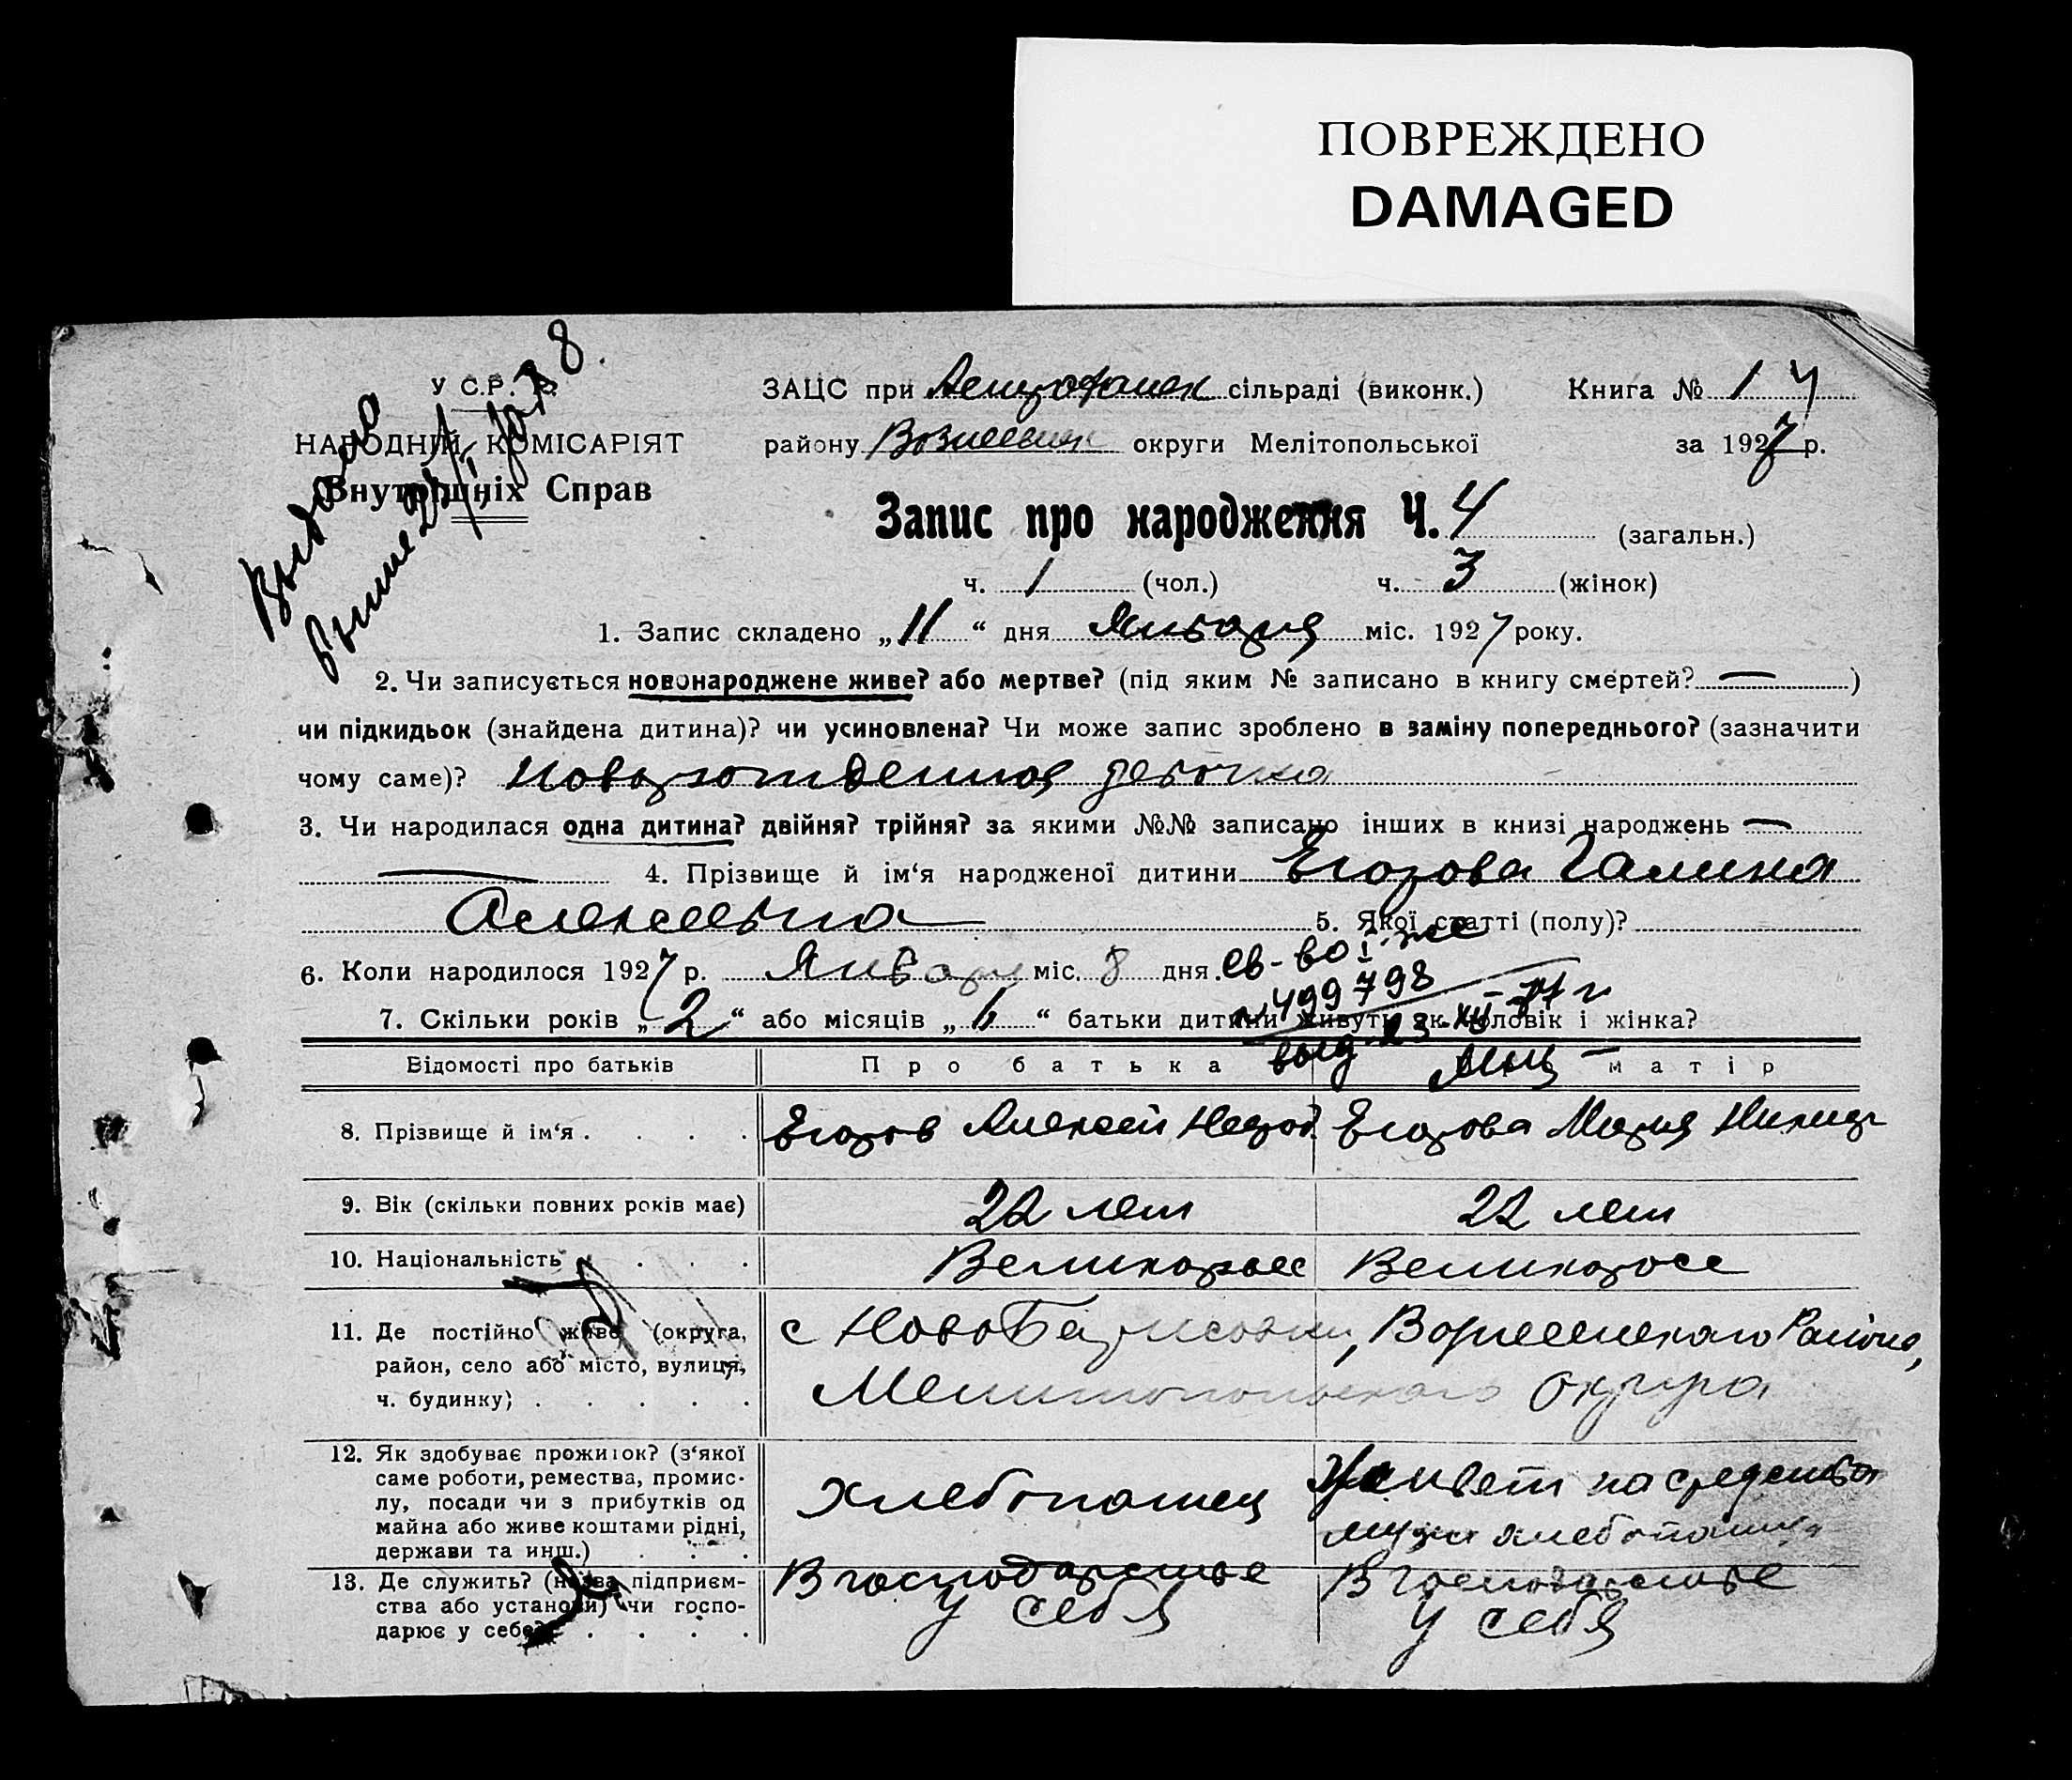 ПОВРЕЖДЕНО
DAMAGED
У С.Р.Р.
НАРОДНІЙ КОМІСАРІЯТ
Внутрішніх Справ
ЗАЦС при сільраді (виконк.) Книга № 1
району округи Мелітопольської за 1927 р.
Запис про народження Ч. 4 (загальн.)
ч. 1 (чол.) ч. 3 (жінок)
1. Запис складено „11“ дня Января міс. 1927 року.
2. Чи записується новонароджене живе? або мертве? (під яким № записано в книгу смертей? — )
чи підкидьок (знайдена дитина)? чи усиновлена? Чи може запис зроблено в заміну попереднього? (зазначити
чому саме)? Новорожденная девочка
3. Чи народилася одна дитина? двійня? трійня? за якими №№ записано інших в книзі народжень —
— 4. Прізвище й ім‘я народженої дитини Егорова Галина
Алексеевна 5. Якої статті (полу)?
6. Коли народилося 1927 р. Января міс. 8 дня.
св-во
№ 499798
7. Скільки років „2“ або місяців „ “ батьки дитини живуть як чоловік і жінка?
выд. 23
Відомості про батьків Про батька матір
8. Прізвище й ім‘я . . . . Егоров Алексей Егорова Мария
9. Вік (скільки повних років має) 22 лет 22 лет
10. Національність . . . . Великоросс Великоросс
11. Де постійно живе (округа,
район, село або місто, вулиця,
ч. будинку) . . . . .
с Района,
Мелитопольского Округа
12. Як здобуває прожиток? (з‘якої
саме роботи, ремества, промис-
лу, посади чи з прибутків од
майна або живе коштами рідні,
держави та инш.) . . .
Хлебопашец
Живет на средства
мужа хлебопашца
13. Де служить? (назва підприєм-
ства або установи) чи госпо-
дарює у себе? . . . .
В господарстве
у себя
В господарстве
у себя
Выдано